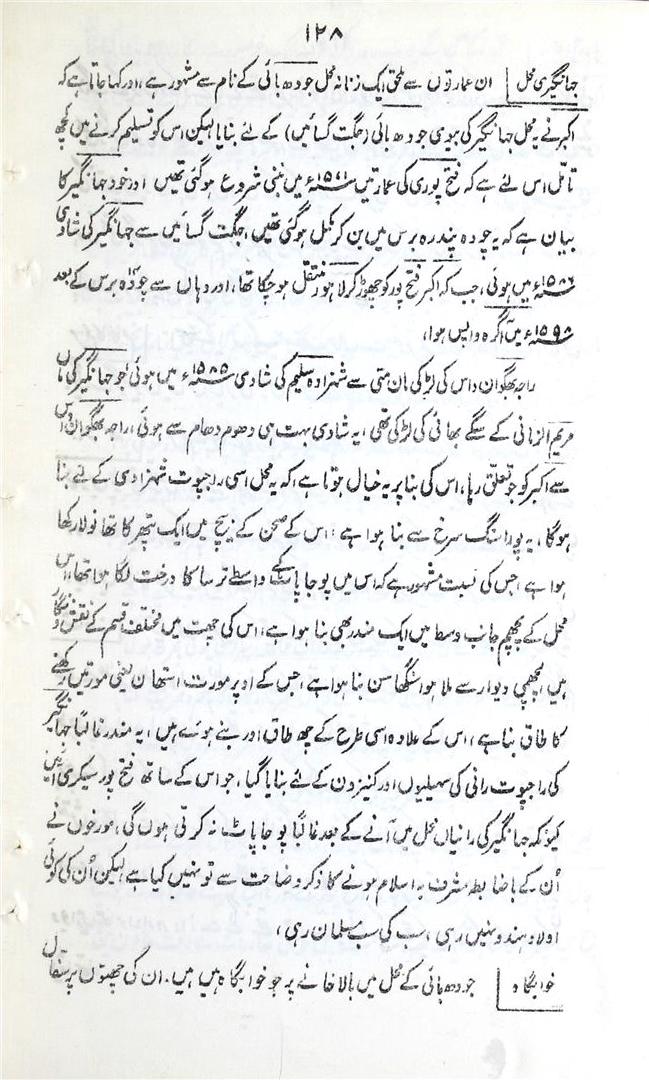 ۱۲۸
جہانگیری محل ان عمارتوں سے ملحق ایک زنانہ محل جودھ بائی کے نام سے مشہور ہے، اور کہا جاتا ہے کہ
اکبر نے یہ محل جہانگیر کی بیوی جودھ بائی (جگت گسائیں) کے لئے بنایا لیکن اس کو تسلیم کرنے میں کچھ
تامل اس لئے ہے کہ فتح پوری کی عمارتیں ۱۵۷۱ء میں بننی شروع ہوگئی تھیں اور خود جہانگیر کا
بیان ہے کہ یہ چودہ پندرہ برس میں بن کر مکمل ہوگئی تھیں، جگت گسائیں سے جہانگیر کی شادی
۱۵۸۶ء میں ہوئی، جب کہ اکبر فتح پور کو چھوڑ کر لاہور منتقل ہو چکا تھا، اور وہاں سے چودہ برس کے بعد
۱۵۹۸ء میں آگرہ واپس ہوا،
راجہ بھگوان داس کی لڑکی مان متی سے شہزادہ سلیم کی شادی ۱۵۸۵ء میں ہوئی جو جہانگیر کی ماں
مریم الزمانی کے سگے بھائی کی لڑکی تھی، یہ شادی بہت ہی دھوم دھام سے ہوئی، راجہ بھگوان داس
سے اکبر کو جو تعلق رہا، اس کی بنا پر یہ خیال ہوتا ہے کہ یہ محل اسی راجپوت شہزادی کے لئے بنا
ہوگا، یہ پورا سنگ سرخ سے بنا ہوا ہے، اس کے صحن کے بیچ میں ایک پتھر کا تھانولا رکھا
ہوا ہے، جس کی نسبت مشہور ہے کہ اس میں پوجا پاٹ کے واسطے ترسا کا درخت لگا ہوا تھا، اس
محل کے پچھم جانب وسط میں ایک مندر بھی بنا ہوا ہے، اس کی چھت میں مختلف قسم کے نقش و نگار
ہیں، پچھمی دیوار سے ملا ہوا سنگھاسن بنا ہوا ہے، جس کے اوپر مورت استھان یعنی مورتیں رکھنے
کا طاق بنا ہے، اس کے علاوہ اسی طرح کے چھ طاق اور بنے ہوئے ہیں، یہ مندر غالباً جہانگیر
کی راجپوت رانی کی سہیلیوں اور کنیزوں کے لئے بنایا گیا، جو اس کے ساتھ فتح پور سیکری آئیں
کیونکہ جہانگیر کی رانیاں محل میں آنے کے بعد غالباً پوجا پاٹ نہ کرتی ہوں گی، مورخوں نے
اُن کے باضابطہ مشرف بہ اسلام ہونے کا ذکر وضاحت سے تو نہیں کیا ہے لیکن اُن کی کوئی
اولاد ہندو نہیں رہی، سب کی سب مسلمان رہی،
خوابگاہ جودھ بائی کے محل میں بالاخانے پر جو خوابگاہیں ہیں. ان کی چھتوں پر سفال